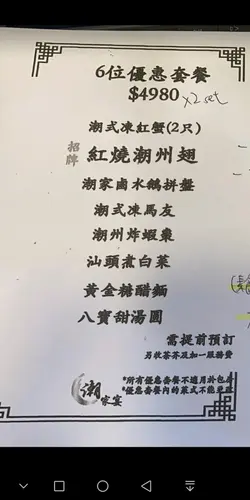 6位優惠套餐
$4980 x2 set
潮式凍紅蟹(2只)
招牌 紅燒潮州翅
潮家鹵水鵝拼盤
潮式凍馬友
潮州炸蝦棗
汕頭煮白菜
黃金糖醋麵
八寶甜湯圓
需提前預訂
另收茶芥及加一服務費
潮家宴
*所有優惠套餐不適用於包房
*優惠套餐內的菜式不能更改